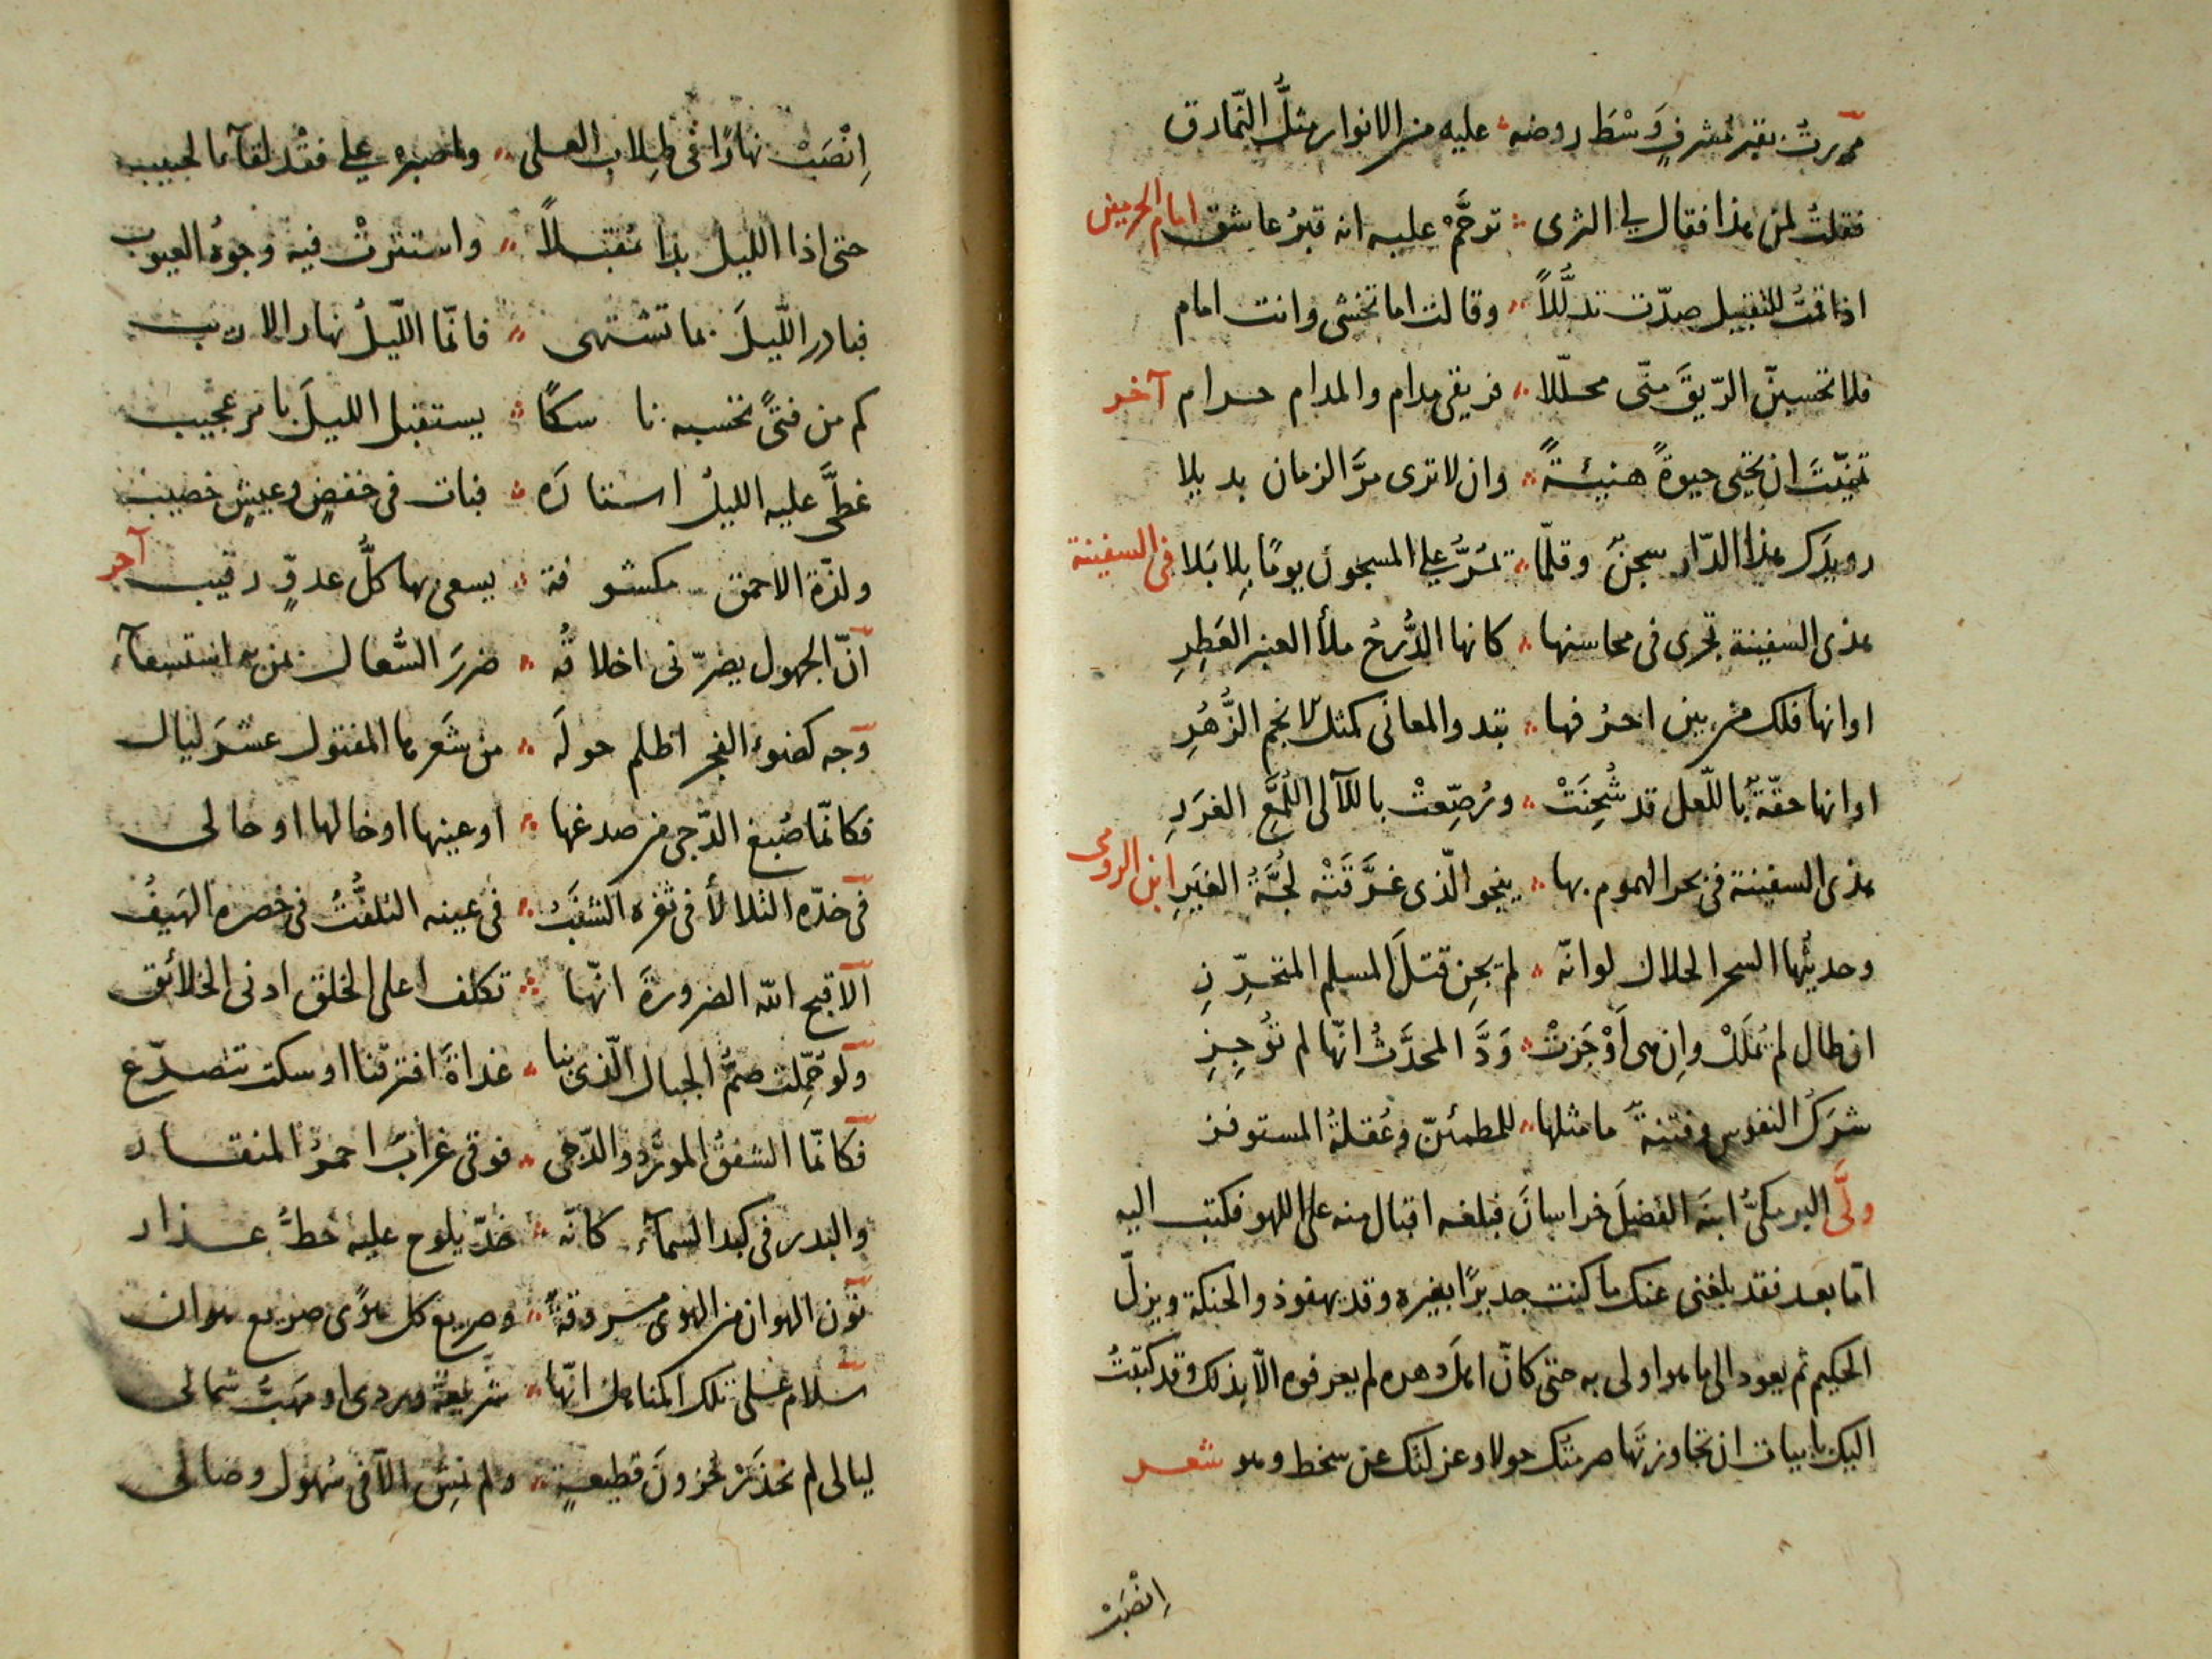 مررتُ بقبرٍ مشرفٍ وَسْطَ روضه ؞ عليه من الانوار مثلُ النّمارق
فقلتُ لمن هذا فقال لي الثرى ؞ ترحَّمْ عليه انه قبرُ عاشق امام الحرمين
اذا قمتُ للتقبيل صدّت تدلُّلاً ؞ وقالت اما تخشى وانت امام
فلا تحسبنّ الرّيقَ منّى محلّلا ؞ فريقى مدام والمدام حرام آخر
تمنّيتَ ان تحيى حيوةً هنيئةً ؞ وان لا ترى مرَّ الزمان بديلا
رويدَك هذا الدّار سجنٌ وقلّما ؞ تمُرُّ على المسجون يومًا بِلا بَلا فى السفينة
هذى السفينة تجرى فى محاسنها ؞ كانها الدُّرجُ ملأ العنبر العَطِرِ
او انها فلك من بين احرُفها ؞ تبدو المعانى كمثل الانجم الزُّهُرِ
او انها حقّةٌ باللّعل قد شُحِنَتْ ؞ ورُصِّعتْ باللآلى اللُّمَّعِ الغُرَرِ
هذى السفينة فى بحر الهموم بها ؞ ينجو الّذى غرَّقَتْه لُجَّةُ الغِيَرِ ابن الرومى
وحديثُها السحر الحلال لو انّه ؞ لم يجنِ قتلَ المسلم المتحرِّزِ
ان طال لم يُملَلْ وان هى اَوْجَزتْ ؞ وَدَّ المحدَّثُ انّها لم تُوجِزِ
شرَكُ النفوس وفتنةٌ ما مثلها ؞ للمطمئنّ وعُقلةُ المستوفز
ولَّى البرمكىُّ ابنَه الفضيلَ خراسانَ فبلغه اقبال منه على اللهو فكتب اليه
امّا بعد فقد بلغنى عنك ما كنت جديرًا بغيره وقد يهفو ذو الحنكة ويزلّ
الحكيم ثم يعود الى ما هو اولى به حتى كانّ اهل دهره لم يعرفوه الّا بذلك وقد كتبتُ
اليك بابيات ان تجاوزتَها هجرتك حولا وعزلتك عن سخط وهو شعر
اِنْصَبْ
اِنْصَبْ نهارًا فى طِلاب العلى ؞ واصبر على فقْد لقآء الحبيب
حتى اذا الليل بدا مُقبلاً ؞ واستترتْ فيه وجوهُ العيوب
فبادر اللّيلَ بما تشتهى ؞ فانّما اللّيلُ نهار الاريب
كم من فتىً تحسبه ناسكًا ؞ يستقبل الليلَ بامر عجيب
غطَّى عليه الليلُ استارَه ؞ فبات فى خفضٍ وعيشٍ خصيب
ولذّة الاحمق مكشوفة ؞ يسعى بها كلُّ عدوٍّ رقيب آخر
انّ الجهول يضرّنى اخلاقُه ؞ ضررَ السُّعال بمن به استسقآء
وجه كضوء الفجر اظلم حولَه ؞ من شَعرها المفتول عشرَ ليال
فكانّما صُبغ الدّجى من صدغها ؞ او عينها او خالها او حالى
فى خدّه الثلالأ فى ثغره الشنَبُ ؞ فى عينه التلفُّتُ فى خصره الهَيفُ
الا قبح الله الضرورةَ انّها ؞ تكلف اعلى الخلق ادنى الخلائق
ولو حُمّلت صمُّ الجبال الّذى بنا ؞ غداةَ افترقنا اوسكت تتصدّع
فكانّما الشفقُ المورَّد والدّجى ؞ فوقى غرابٌ احمرُ المنقار
والبدر فى كبد السمآء كانّه ؞ خدّ يلوح عليه خطُّ عذار
نون الهوان من الهوى مسروقةٌ ؞ وصريع كل هوًى صريع هوان
سلام على تلك المناهل انّها ؞ شريعةُ وردى او مهَبُّ شمالى
ليالى لم نحذَرْ حُزونَ قطيعةٍ ؞ ولم نمشِ الّا فى سُهول وصالى